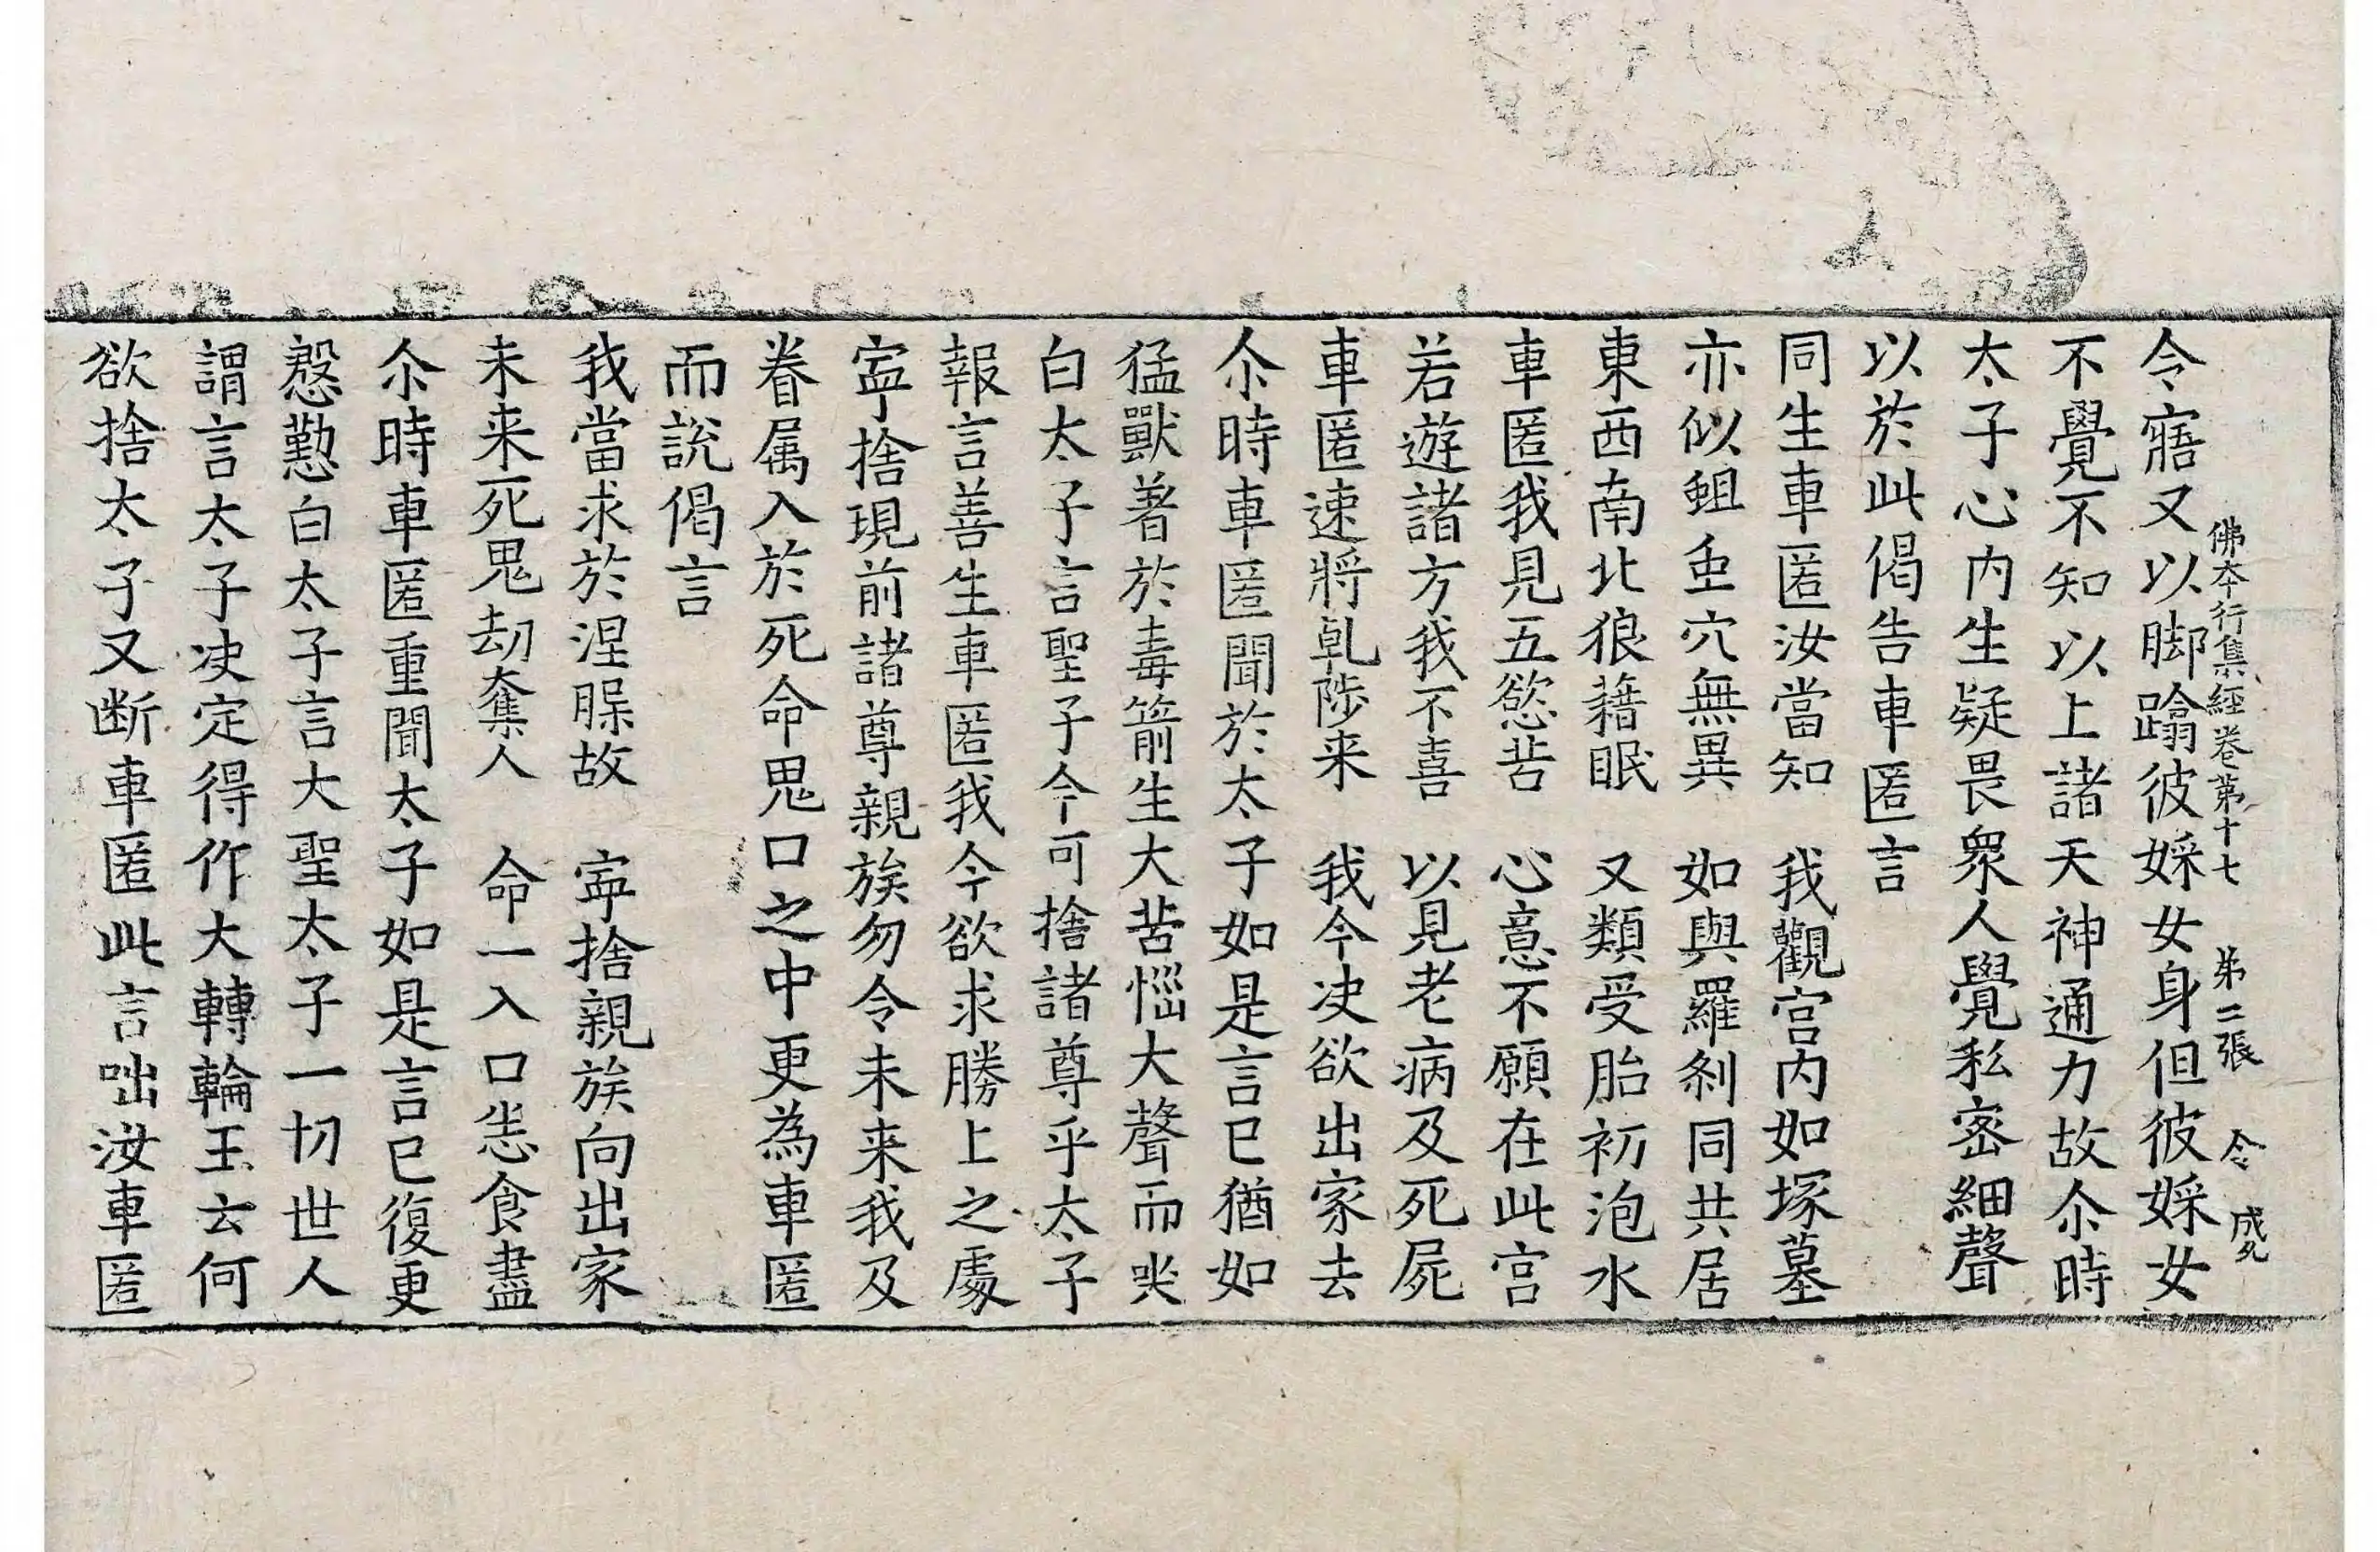 佛夲行集經卷第十七 第二張 令
令寤又以脚蹹彼婇女身但彼婇女
不覺不知以上諸天神通力故尒時
太子心内生疑畏衆人覺私宻細聲
以於此偈告車匿言
同生車匿汝當知 我觀宫内如塚墓
亦似蛆虫穴無異 如與羅刹同共居
東西南北狼藉眠 又類受胎初泡水
車匿我見五慾苦 心意不願在此宫
若遊諸方我不喜 以見老病及死屍
車匿速將乹陟来 我今决欲出家去
尒時車匿聞於太子如是言已猶如
猛獸著於毒箭生大苦惱大聲而哭
白太子言聖子今可捨諸尊乎太子
報言善生車匿我今欲求勝上之處
寧捨現前諸尊親族勿令未来我及
眷属入於死命鬼口之中更為車匿
而說偈言
我當求於涅槃故 寧捨親族向出家
未来死鬼刧奪人 命一入口恙食盡
尒時車匿重聞太子如是言已復更
慇懃白太子言大聖太子一切世人
謂言太子决定得作大轉輪王云何
欲捨太子又断車匿此言咄汝車匿